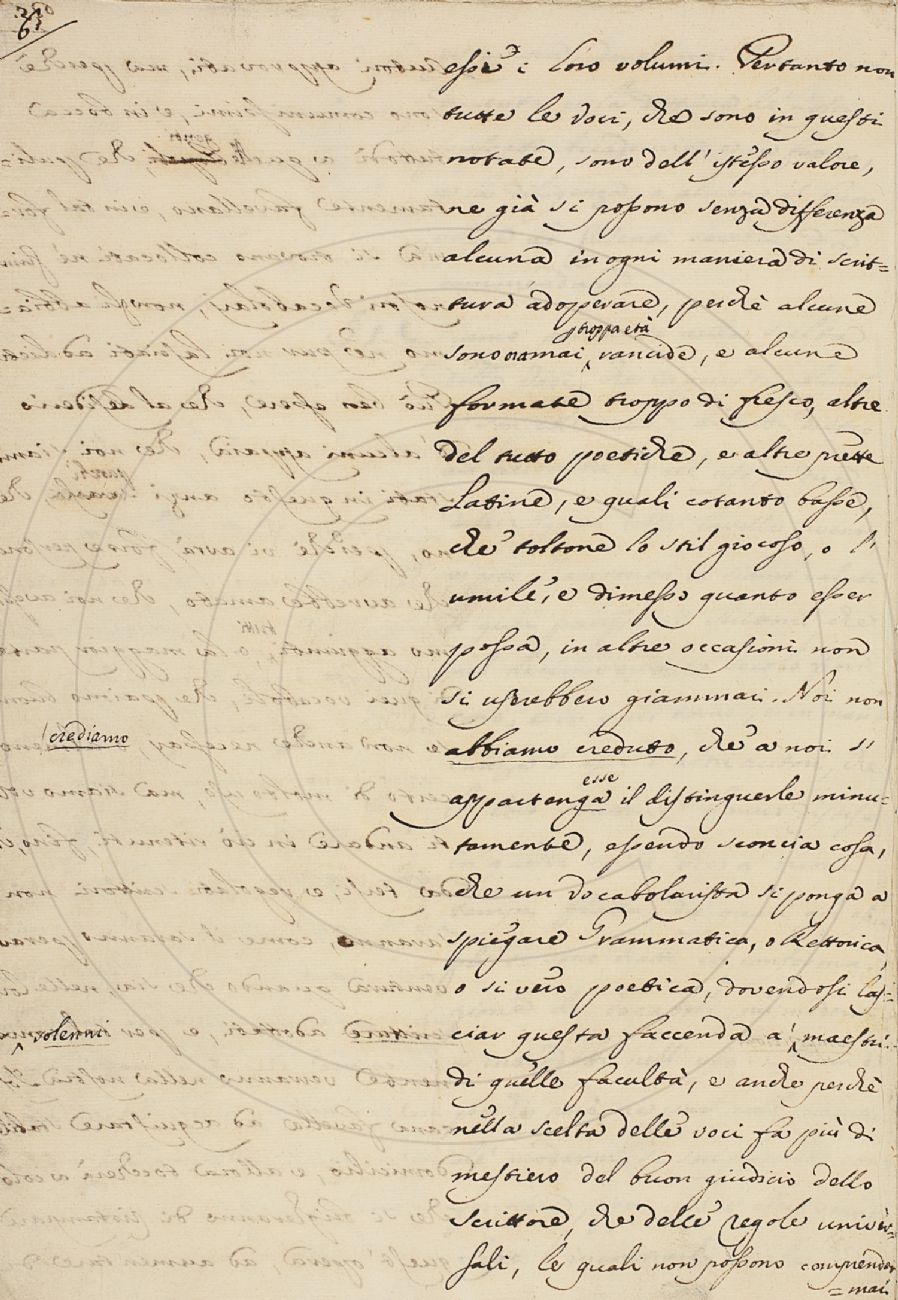 essi i loro volumi. Pertanto non
tutte le voci, che sono in questi
notate, sono dell' istesso valore,
ne già si possono senza differenza
alcuna in ogni maniera di scrit=
tura adoperare, perchè alcune
troppa età
sono oramai rancide, e alcune
formate troppo di fresco, altre
del tutto poetiche, e altre prette
Latine, e quali cotanto basse,
che toltone lo stil giocoso, o l'
umile, e dimesso quanto esser
possa, in altre occasioni non
si userebbero giammai. Noi non
crediamo
abbiamo creduto, che a noi si
esse
appartenga il distinguerle minu=
tamente, essendo sconcia cosa,
che un Vocabolarista si ponga a
spiegare Grammatica, o Rettorica,
o si vero poetica, dovendosi las=
volentieri
ciar questa faccenda a' maestri
di quelle facultà, e anche perchè
nella scelta delle voci fa più di
mestiero del buon giudicio dello
scrittore, che delle regole univer=
sali, le quali non possono comprender
=mai